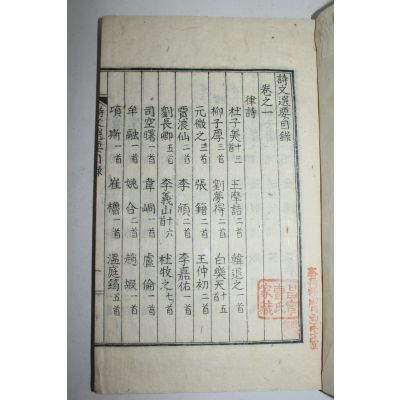 詩文選要目錄
卷之一
律詩
杜子美十三首 王摩詰二首 韓退之一首
柳子厚三首 劉夢得二首 白樂天十五首
元微之三首 張籍二首 王仲初二首
賈浪仙二首 李頎二首 李嘉佑一首
劉長卿五首 李義山十六首 杜牧之七首
司空曙一首 韋峒一首 盧倫一首
牟融一首 姚合二首 趙嘏一首
項斯一首 崔櫓一首 溫庭筠五首
詩文選要目錄